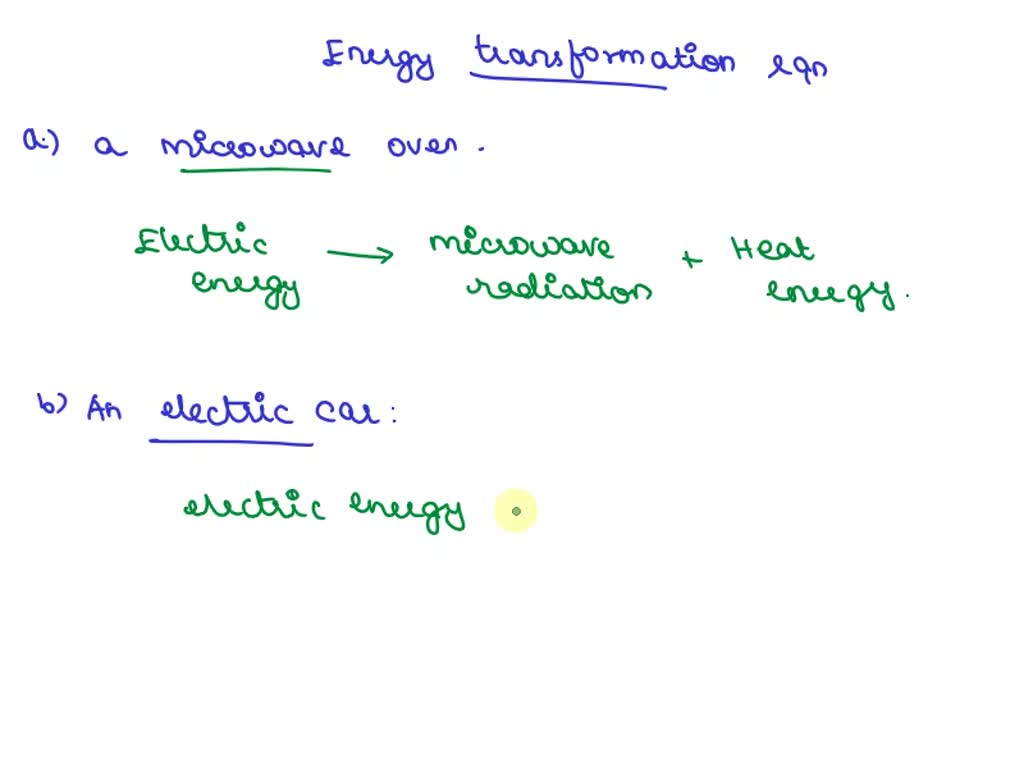 Energy transformation eqn
a.) a microwave oven.
Electric energy → microwave radiation + Heat energy.
b) An electric car:
electric energy